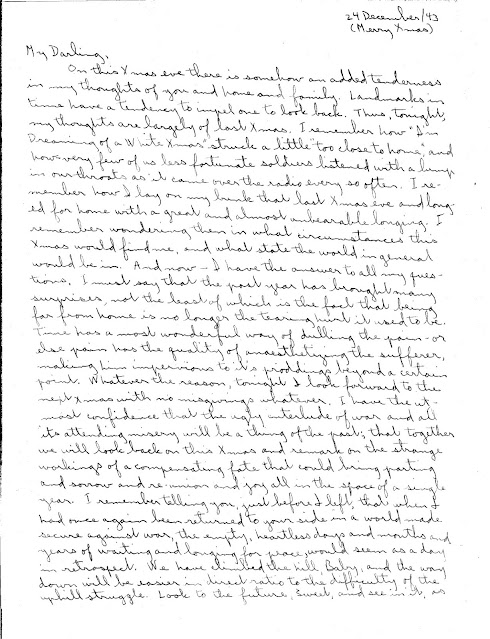 24 December/43
(Merry Xmas)
My Darling,
On this Xmas eve there is somehow an added tenderness
in my thoughts of you and home and family. Landmarks in
time have a tendency to impel one to look back. Thus, tonight,
my thoughts are largely of last Xmas. I remember how "I'm
Dreaming of a White Xmas" struck a little too close to home, and
how very few of us less fortunate soldiers listened with a lump
in our throats as it came over the radio every so often. I re-
member how I lay on my bunk that last Xmas eve and long-
ed for home with a great and almost unbearable longing. I
remember wondering then in what circumstances this
Xmas would find me, and what state the world in general
would be in. And now - I have the answer to all my ques-
tions. I must say that the past year has brought many
surprises, not the least of which is the fact that being
far from home is no longer the tearing hurt it used to be.
Time has a most wonderful way of dulling the pain - or
else pain has the quality of anaesthetizing the sufferer,
making him impervious to it's proddings beyond a certain
point. Whatever the reason, tonight I look forward to the
next Xmas with no misgivings whatever. I have the ut-
most confidence that the ugly interlude of war and all
its attending misery will be a thing of the past; that together
we will look back on this Xmas and remark on the strange
workings of a compensating fate that could bring parting
and sorrow and re-union and joy all in the space of a single
year. I remember telling you, just before I left, that when I
had once again been returned to your side in a world made
secure against war, the empty, heartless days and months and
years of waiting and longing for peace would seem as a day
in retrospect. We have climbed the hill, Baby, and the way
down will be easier in direct ratio to the difficulty of the
uphill struggle. Look to the future, Sweet, and see in it, as